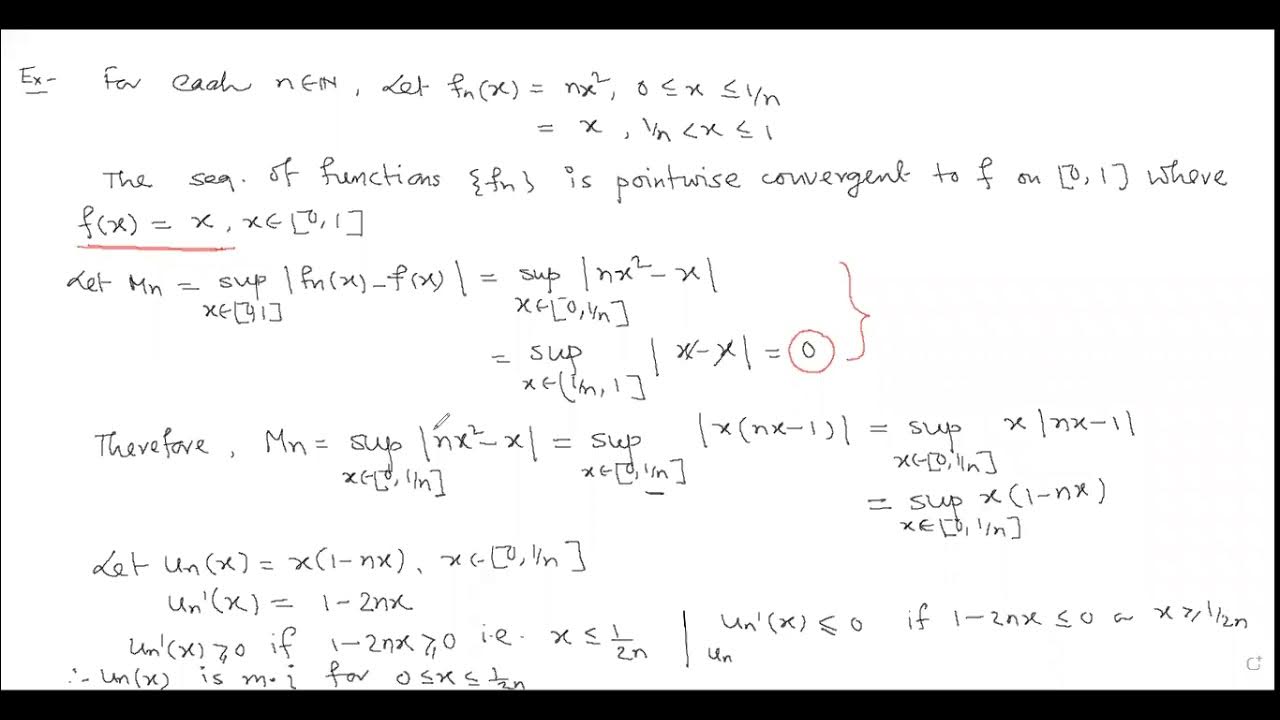 Ex- For each n∈ℕ, Let fn(x) = nx², 0 ≤ x ≤ 1/n
= x, 1/n < x ≤ 1
The seq. of functions {fn} is pointwise convergent to f on [0, 1] where
f(x) = x, x∈[0, 1]
Let Mn = sup |fn(x) - f(x)| = sup |nx² - x|
x∈[0,1] x∈[0, 1/n]
= sup | x - x | = 0
x∈(1/n, 1]
Therefore, Mn = sup |nx² - x| = sup |x(nx-1)| = sup x |nx-1|
x∈[0, 1/n] x∈[0, 1/n] x∈[0, 1/n]
= sup x(1-nx)
x∈[0, 1/n]
Let un(x) = x(1-nx), x∈[0, 1/n]
un'(x) = 1-2nx
un'(x) ≥ 0 if 1-2nx ≥ 0 i.e. x ≤ 1/2n | un'(x) ≤ 0 if 1-2nx ≤ 0 or x ≥ 1/2n
un
∴ un(x) is m.i for 0 ≤ x ≤ 1/2n